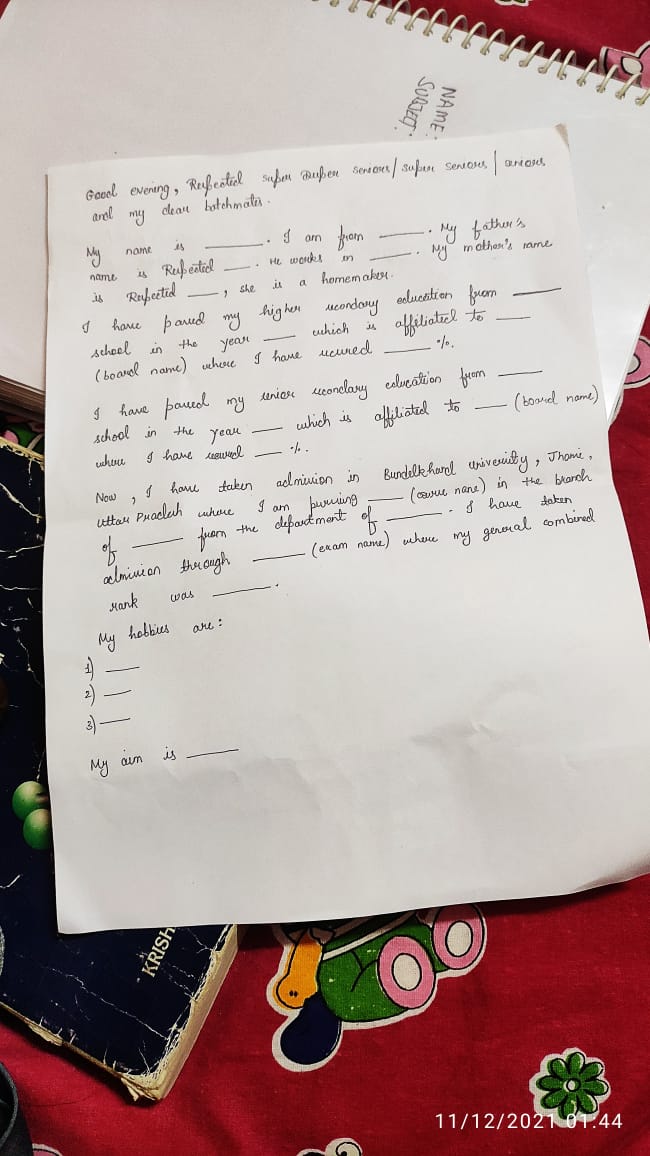 NAME:
SUBJECT:
Good evening, Respected super Duper seniors/ super seniors / seniors
and my dear batchmates.
My name is ____. I am from ____. My father's
name is Respected ____. He works in ____. My mother's name
is Respected ____, she is a homemaker.
I have passed my higher secondary education from ____
school in the year ____ which is affiliated to ____
(board name) where I have secured ____ %.
I have passed my senior secondary education from ____
school in the year ____ which is affiliated to ____ (board name)
where I have secured ____ %.
Now, I have taken admission in Bundelkhand university, Jhansi,
Uttar Pradesh where I am pursuing ____ (course name) in the branch
of ____ from the department of ____. I have taken
admission through ____ (exam name) where my general combined
rank was ____.
My hobbies are:
1) ____
2) ____
3) ____
My aim is ____
KRISH
11/12/2021 01:44